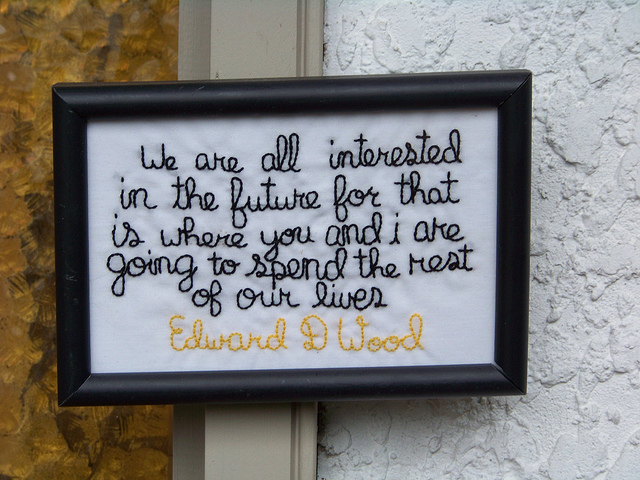 We are all interested
in the future for that
is where you and i are
going to spend the rest
of our lives
Edward D Wood